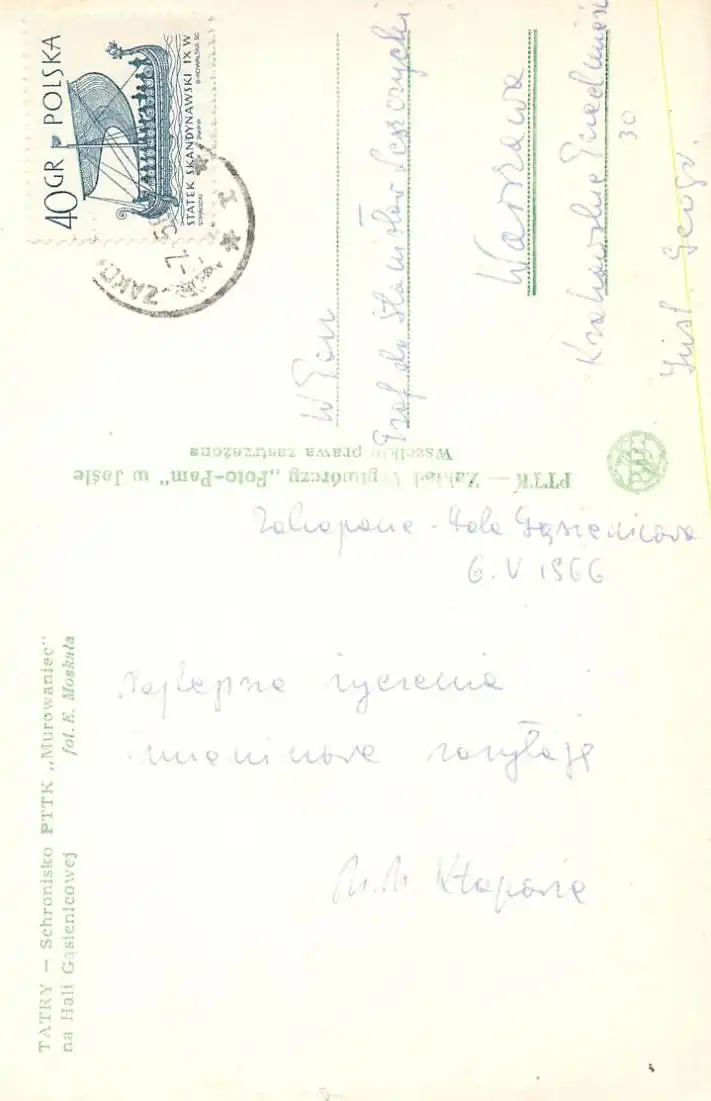 40 GR POLSKA
STATEK SKANDYNAWSKI IX W
PWPW
W Pan
Prof dr Stanisław Leszczycki
Warszawa
Krakowskie Przedmieście
30
Inst. Geogr.
PTTK — Zakład Wytwórczy „Foto-Pam" w Jaśle
Wszelkie prawa zastrzeżone
Zakopane - Hala Gąsienicowa
6.V 1966
Najlepsze życzenia
imieninowe zasyłają
M. M. Kłapowie
TATRY — Schronisko PTTK „Murowaniec"
na Hali Gąsienicowej
fot. E. Moskała